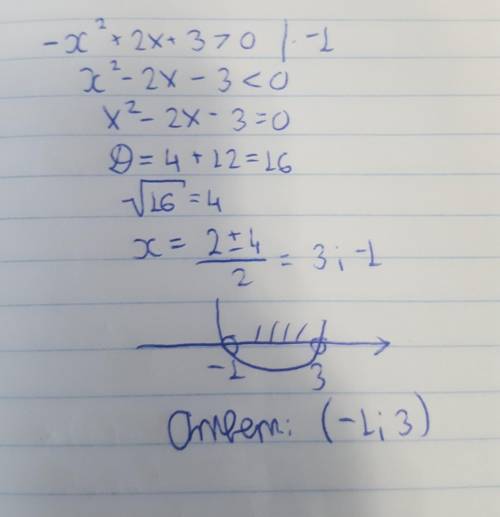 -x² + 2x + 3 > 0 | · -1
x² - 2x - 3 < 0
x² - 2x - 3 = 0
D = 4 + 12 = 16
√16 = 4
x = (2 ± 4)/2 = 3; -1
-1 3
Ответ: (-1; 3)